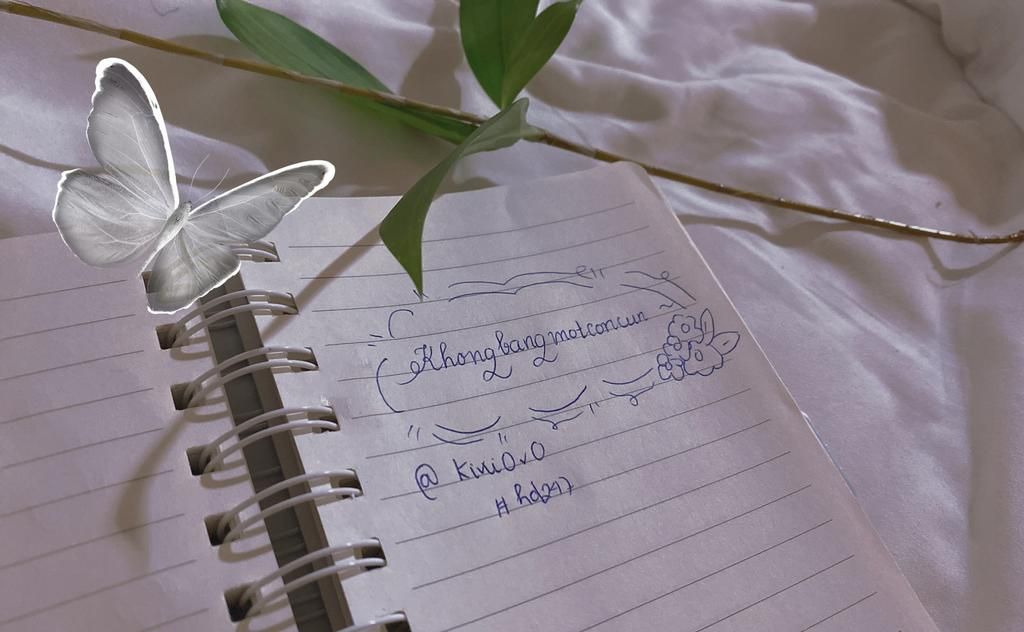 Khongbangmotconcun
@ KiniOvO
# hd247